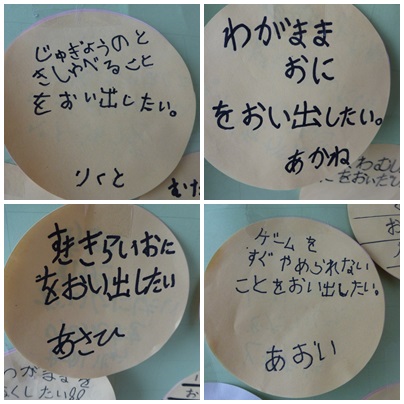 じゅぎょうのと
きしゃべること
をおい出したい。
りくと
わがまま
おに
をおい出したい。
あかね
わむし
をおいたひ
すききらいおに
をおい出したい
あさひ
わがままを
なくしたい
ゲームを
すぐやめられない
ことをおい出したい。
あおい